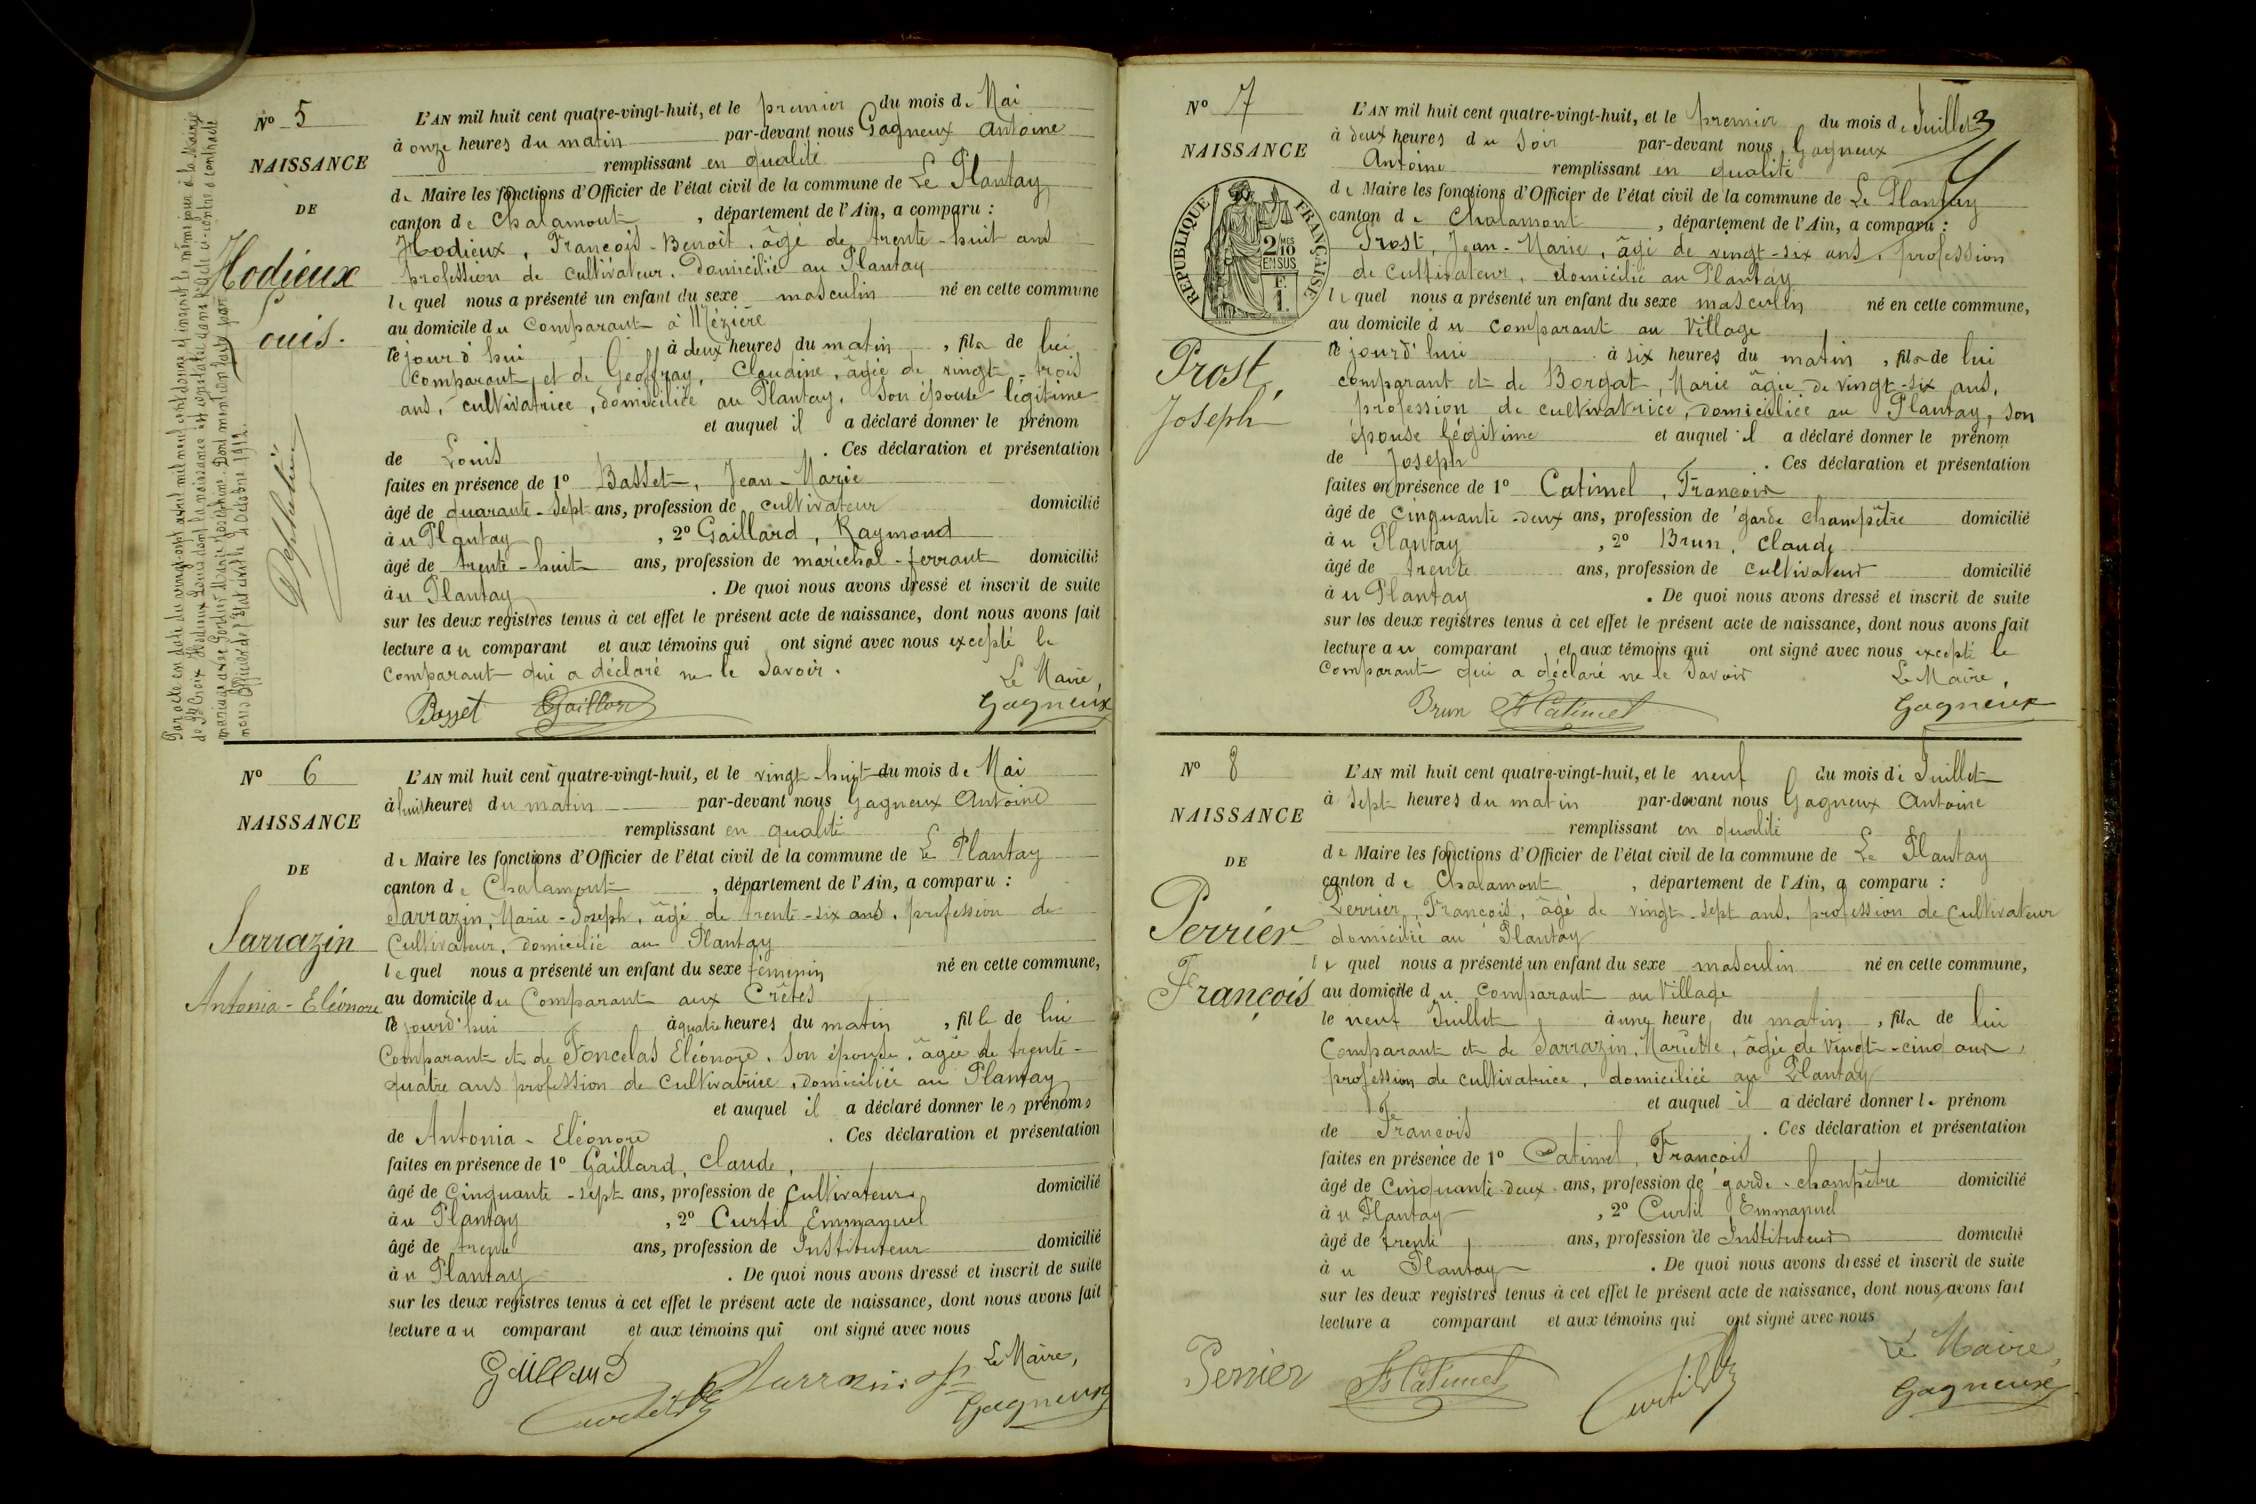 N° 5
NAISSANCE
DE
Hodieux
Louis.
L'AN mil huit cent quatre-vingt-huit, et le premier du mois de Mai
à onze heures du matin par-devant nous Gagneux Antoine
remplissant en qualité
de Maire les fonctions d'Officier de l'état civil de la commune de Le Plantay
canton de Chalamont, département de l'Ain, a comparu :
Hodieux, François-Benoit, âgé de trente-huit ans
profession de cultivateur, Domicilié au Plantay
lequel nous a présenté un enfant du sexe masculin né en cette commune
au domicile du Comparant à Mézière
le jourd'hui à deux heures du matin, fils de lui
comparant et de Geoffray, Claudine, âgée de vingt-trois
ans, cultivatrice, domiciliée au Plantay, son épouse légitime
et auquel il a déclaré donner le prénom
de Louis. Ces déclaration et présentation
faites en présence de 1° Basset, Jean-Marie
âgé de quarante-sept ans, profession de cultivateur domicilié
au Plantay, 2° Gaillard, Raymond
âgé de trente-huit ans, profession de maréchal-ferrant domicilié
au Plantay. De quoi nous avons dressé et inscrit de suite
sur les deux registres tenus à cet effet le présent acte de naissance, dont nous avons fait
lecture au comparant et aux témoins qui ont signé avec nous excepté le
comparant qui a déclaré ne le savoir.
Le Maire,
Basset Gaillard Gagneux
Par acte en date du vingt-sept avril mil neuf cent douze et inscrit le même jour à la Mairie
de Ste Croix Hodieux Louis dont la naissance est constatée dans l'acte ci-contre a contracté
mariage avec Marie Joséphine. Dont mention faite par
nous Officier de l'Etat civil le 4 Octobre 1912.
N° 6
NAISSANCE
DE
Sarrazin
Antonia-Eléonore
L'AN mil huit cent quatre-vingt-huit, et le vingt-huit du mois de Mai
à huit heures du matin par-devant nous Gagneux Antoine
remplissant en qualité
de Maire les fonctions d'Officier de l'état civil de la commune de Le Plantay
canton de Chalamont, département de l'Ain, a comparu :
Sarrazin, Marie-Joseph, âgé de trente-six ans, profession de
Cultivateur, domicilié au Plantay
lequel nous a présenté un enfant du sexe féminin né en cette commune,
au domicile du Comparant aux Crêtes
le jourd'hui à quatre heures du matin, fille de lui
Comparant et de Foncelas Eléonore, son épouse, âgée de trente-
quatre ans profession de Cultivatrice, domiciliée au Plantay
et auquel il a déclaré donner les prénoms
de Antonia-Eléonore. Ces déclaration et présentation
faites en présence de 1° Gaillard, Claude,
âgé de Cinquante-sept ans, profession de Cultivateur domicilié
au Plantay, 2° Curtil Emmanuel
âgé de trente ans, profession de Instituteur domicilié
au Plantay. De quoi nous avons dressé et inscrit de suite
sur les deux registres tenus à cet effet le présent acte de naissance, dont nous avons fait
lecture au comparant et aux témoins qui ont signé avec nous
Le Maire,
Gaillard Sarrazin
Curtil Gagneux
N° 7
NAISSANCE
RÉPUBLIQUE FRANÇAISE
2/10
EN SUS
1 F.
Prost,
Joseph
3
L'AN mil huit cent quatre-vingt-huit, et le premier du mois de Juillet
à deux heures du soir par-devant nous Gagneux
Antoine remplissant en qualité
de Maire les fonctions d'Officier de l'état civil de la commune de Le Plantay
canton de Chalamont, département de l'Ain, a comparu :
Prost, Jean-Marie, âgé de vingt-six ans, profession
de Cultivateur, domicilié au Plantay
lequel nous a présenté un enfant du sexe masculin né en cette commune,
au domicile du comparant au Village
le jourd'hui à six heures du matin, fils de lui
comparant et de Borgat, Marie âgée de vingt-six ans,
profession de cultivatrice, domiciliée au Plantay, son
épouse légitime et auquel il a déclaré donner le prénom
de Joseph. Ces déclaration et présentation
faites en présence de 1° Catimel, François
âgé de Cinquante-deux ans, profession de garde champêtre domicilié
au Plantay, 2° Brun, Claude
âgé de trente ans, profession de cultivateur domicilié
au Plantay. De quoi nous avons dressé et inscrit de suite
sur les deux registres tenus à cet effet le présent acte de naissance, dont nous avons fait
lecture au comparant et aux témoins qui ont signé avec nous excepté le
Comparant qui a déclaré ne le Savoir
Le Maire,
Brun F Catimel Gagneux
N° 8
NAISSANCE
DE
Perrier
François
L'AN mil huit cent quatre-vingt-huit, et le neuf du mois de Juillet
à sept heures du matin par-devant nous Gagneux Antoine
remplissant en qualité
de Maire les fonctions d'Officier de l'état civil de la commune de Le Plantay
canton de Chalamont, département de l'Ain, a comparu :
Perrier, François, âgé de vingt-sept ans, profession de Cultivateur
domicilié au Plantay
lequel nous a présenté un enfant du sexe masculin né en cette commune,
au domicile du Comparant au Village
le neuf Juillet à une heure du matin, fils de lui
Comparant et de Sarrazin, Mariette, âgée de vingt-cinq ans,
profession de cultivatrice, domiciliée au Plantay
et auquel il a déclaré donner le prénom
de François. Ces déclaration et présentation
faites en présence de 1° Catimel, François
âgé de Cinquante-deux ans, profession de garde-champêtre domicilié
au Plantay, 2° Curtil Emmanuel
âgé de trente ans, profession de Instituteur domicilié
au Plantay. De quoi nous avons dressé et inscrit de suite
sur les deux registres tenus à cet effet le présent acte de naissance, dont nous avons fait
lecture a comparant et aux témoins qui ont signé avec nous
Le Maire,
Perrier F Catimel Curtil Gagneux